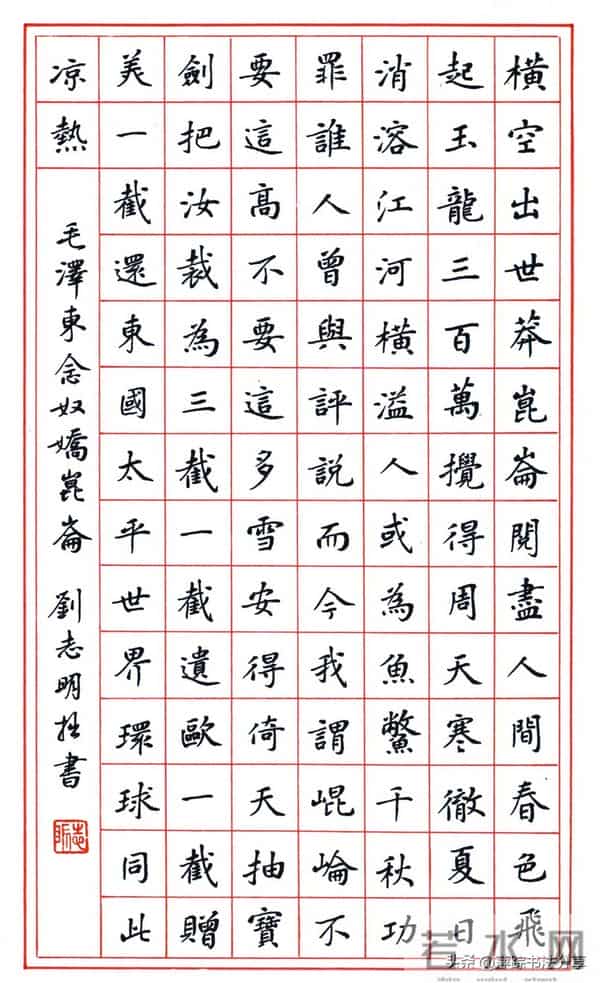 橫空出世莽崑崙閱盡人間春色飛
起玉龍三百萬攪得周天寒徹夏日
消溶江河橫溢人或為魚鱉千秋功
罪誰人曾與評說而今我謂崐崘不
要這高不要這多雪安得倚天抽寶
劍把汝裁為三截一截遺歐一截贈
美一截還東國太平世界環球同此
凉熱
毛澤東念奴嬌崑崙 劉志明拙書
若水网
头条 @萍踪书法分享